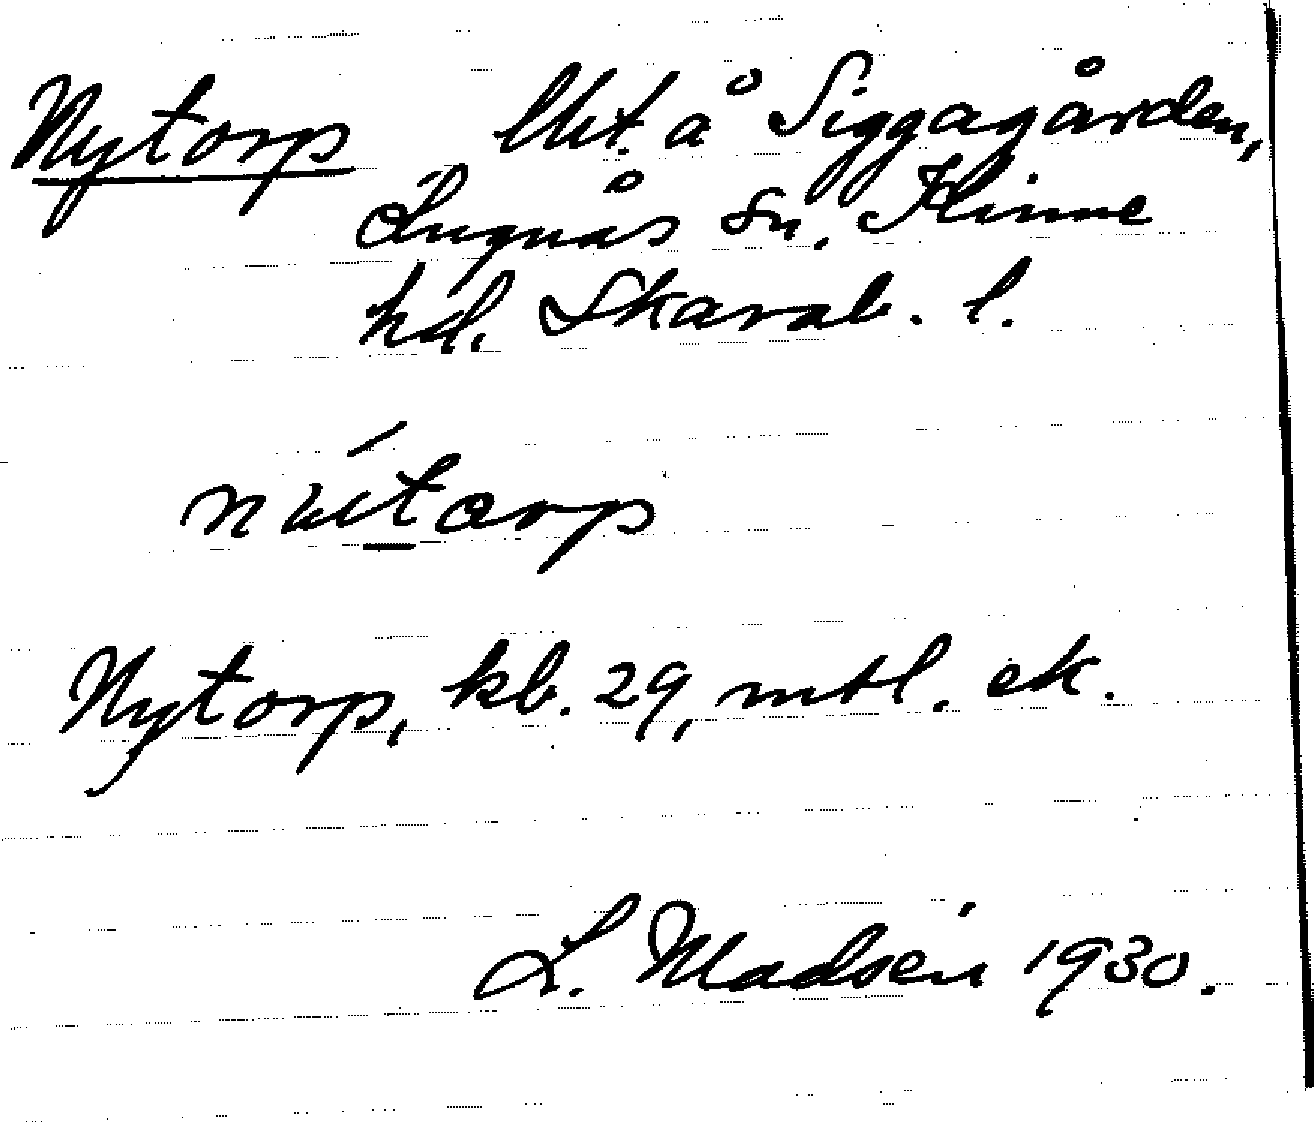 Nytorp lht. å Siggagården,
Lugnås sn. Kinne
hd. Skarab. l.
nýtorp
Nytorp, kb. 29, mtl. ek.
L. Madsén 1930.